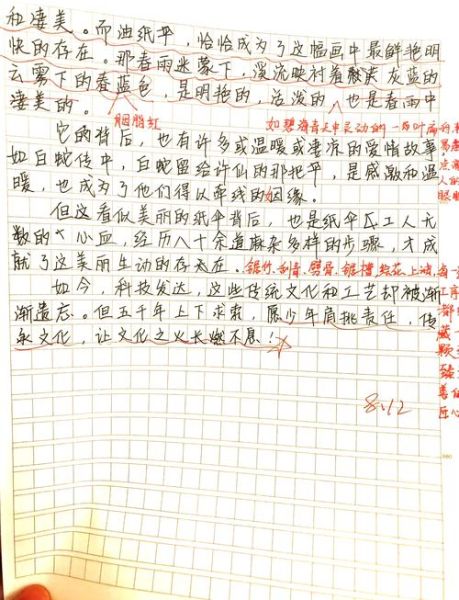 和凄美。而油纸伞，恰恰成为了这幅画中最鲜艳明
快的存在。那春雨迷蒙下，溪流映衬着 灰蓝的
云雾下的春蓝色，是明艳的，活泼的，也是春雨中
凄美的。
胭脂红
如碧海青天中灵动的一
它的背后，也有许多或温暖或凄凉的爱情故事
如白蛇传中，白蛇留给许仙的那把伞，是感激和温
暖，也成为了他们得以牵线的姻缘。
但这看似美丽的纸伞背后，也是纸伞匠工人无
数的个心血，经历八十余道麻杂多样的步骤，才成
就了这美丽生动的存在。
锯竹、刮青、劈骨、锯槽、绘花、上油，每
如今，科技发达，这些传统文化和工艺却被渐
渐遗忘。但五千年上下求索，愿少年肩挑责任，传
承文化，让文化之火长燃不息！
工序
藏
颗
匠心
8.12